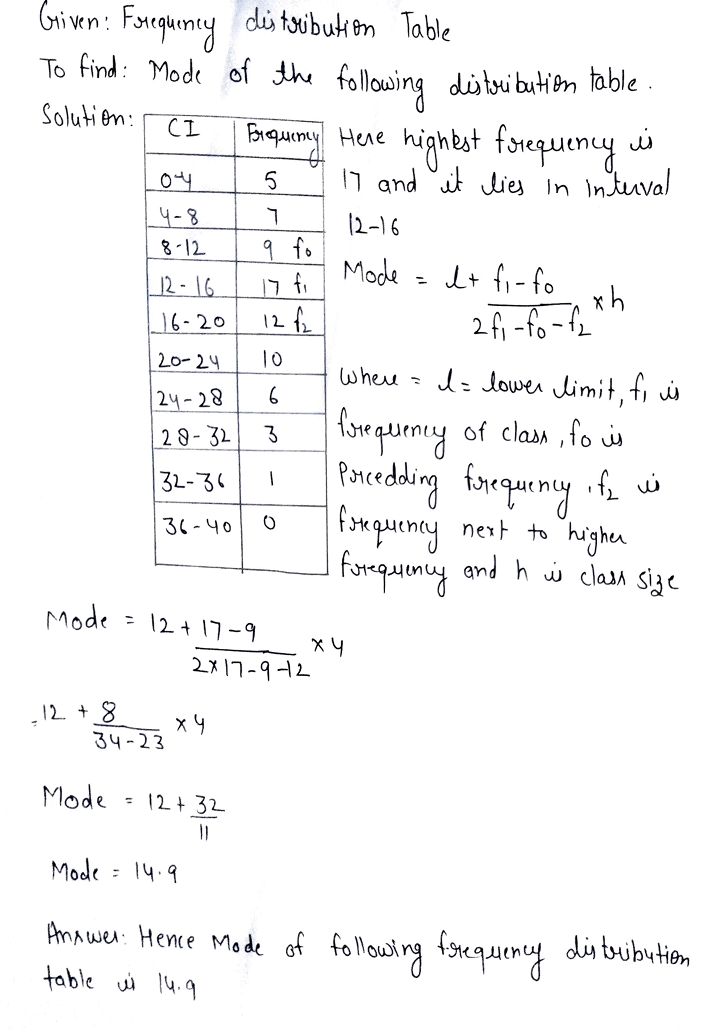 Given: Frequency distribution Table
To find: Mode of the following distribution table.
Solution:
CI Frequency
0-4 5
4-8 7
8-12 9 f0
12-16 17 f1
16-20 12 f2
20-24 10
24-28 6
28-32 3
32-36 1
36-40 0
Here highest frequency is
17 and it lies in interval
12-16
Mode = l + f1-f0 / 2f1-f0-f2 × h
Where = l = lower limit, f1 is
frequency of class, f0 is
Precedding frequency, f2 is
frequency next to higher
frequency and h is class size
Mode = 12 + 17-9 / 2×17-9-12 × 4
= 12 + 8 / 34-23 × 4
Mode = 12 + 32 / 11
Mode = 14.9
Answer: Hence Mode of following frequency distribution
table is 14.9